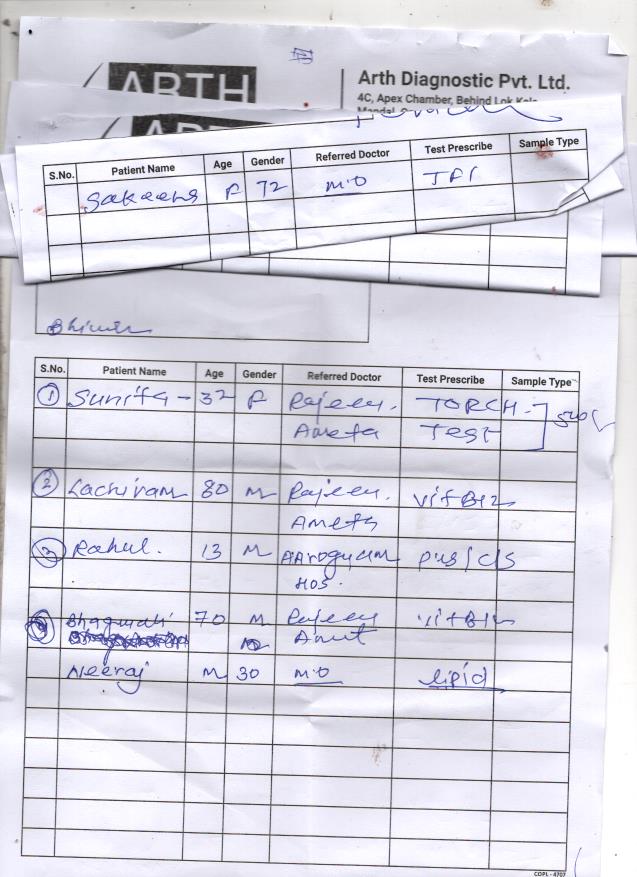 ARTH
Arth Diagnostic Pvt. Ltd.
4C, Apex Chamber, Behind Lok Kala
S.No. Patient Name Age Gender Referred Doctor Test Prescribe Sample Type
Sakeena F 72 M.O
S.No. Patient Name Age Gender Referred Doctor Test Prescribe Sample Type
1 Sunita - 32 F Rajeev. TORCH
Ameta Test
2 Lachiram 80 M Rajeev. Vit B12
Ameta
3 Rahul. 13 M AArogyam pus/c/s
Hos.
4 Bhagwati 70 M Rajeev Vit B12
Amet
Neeraj M 30 M.O lipid
COPL - 4707